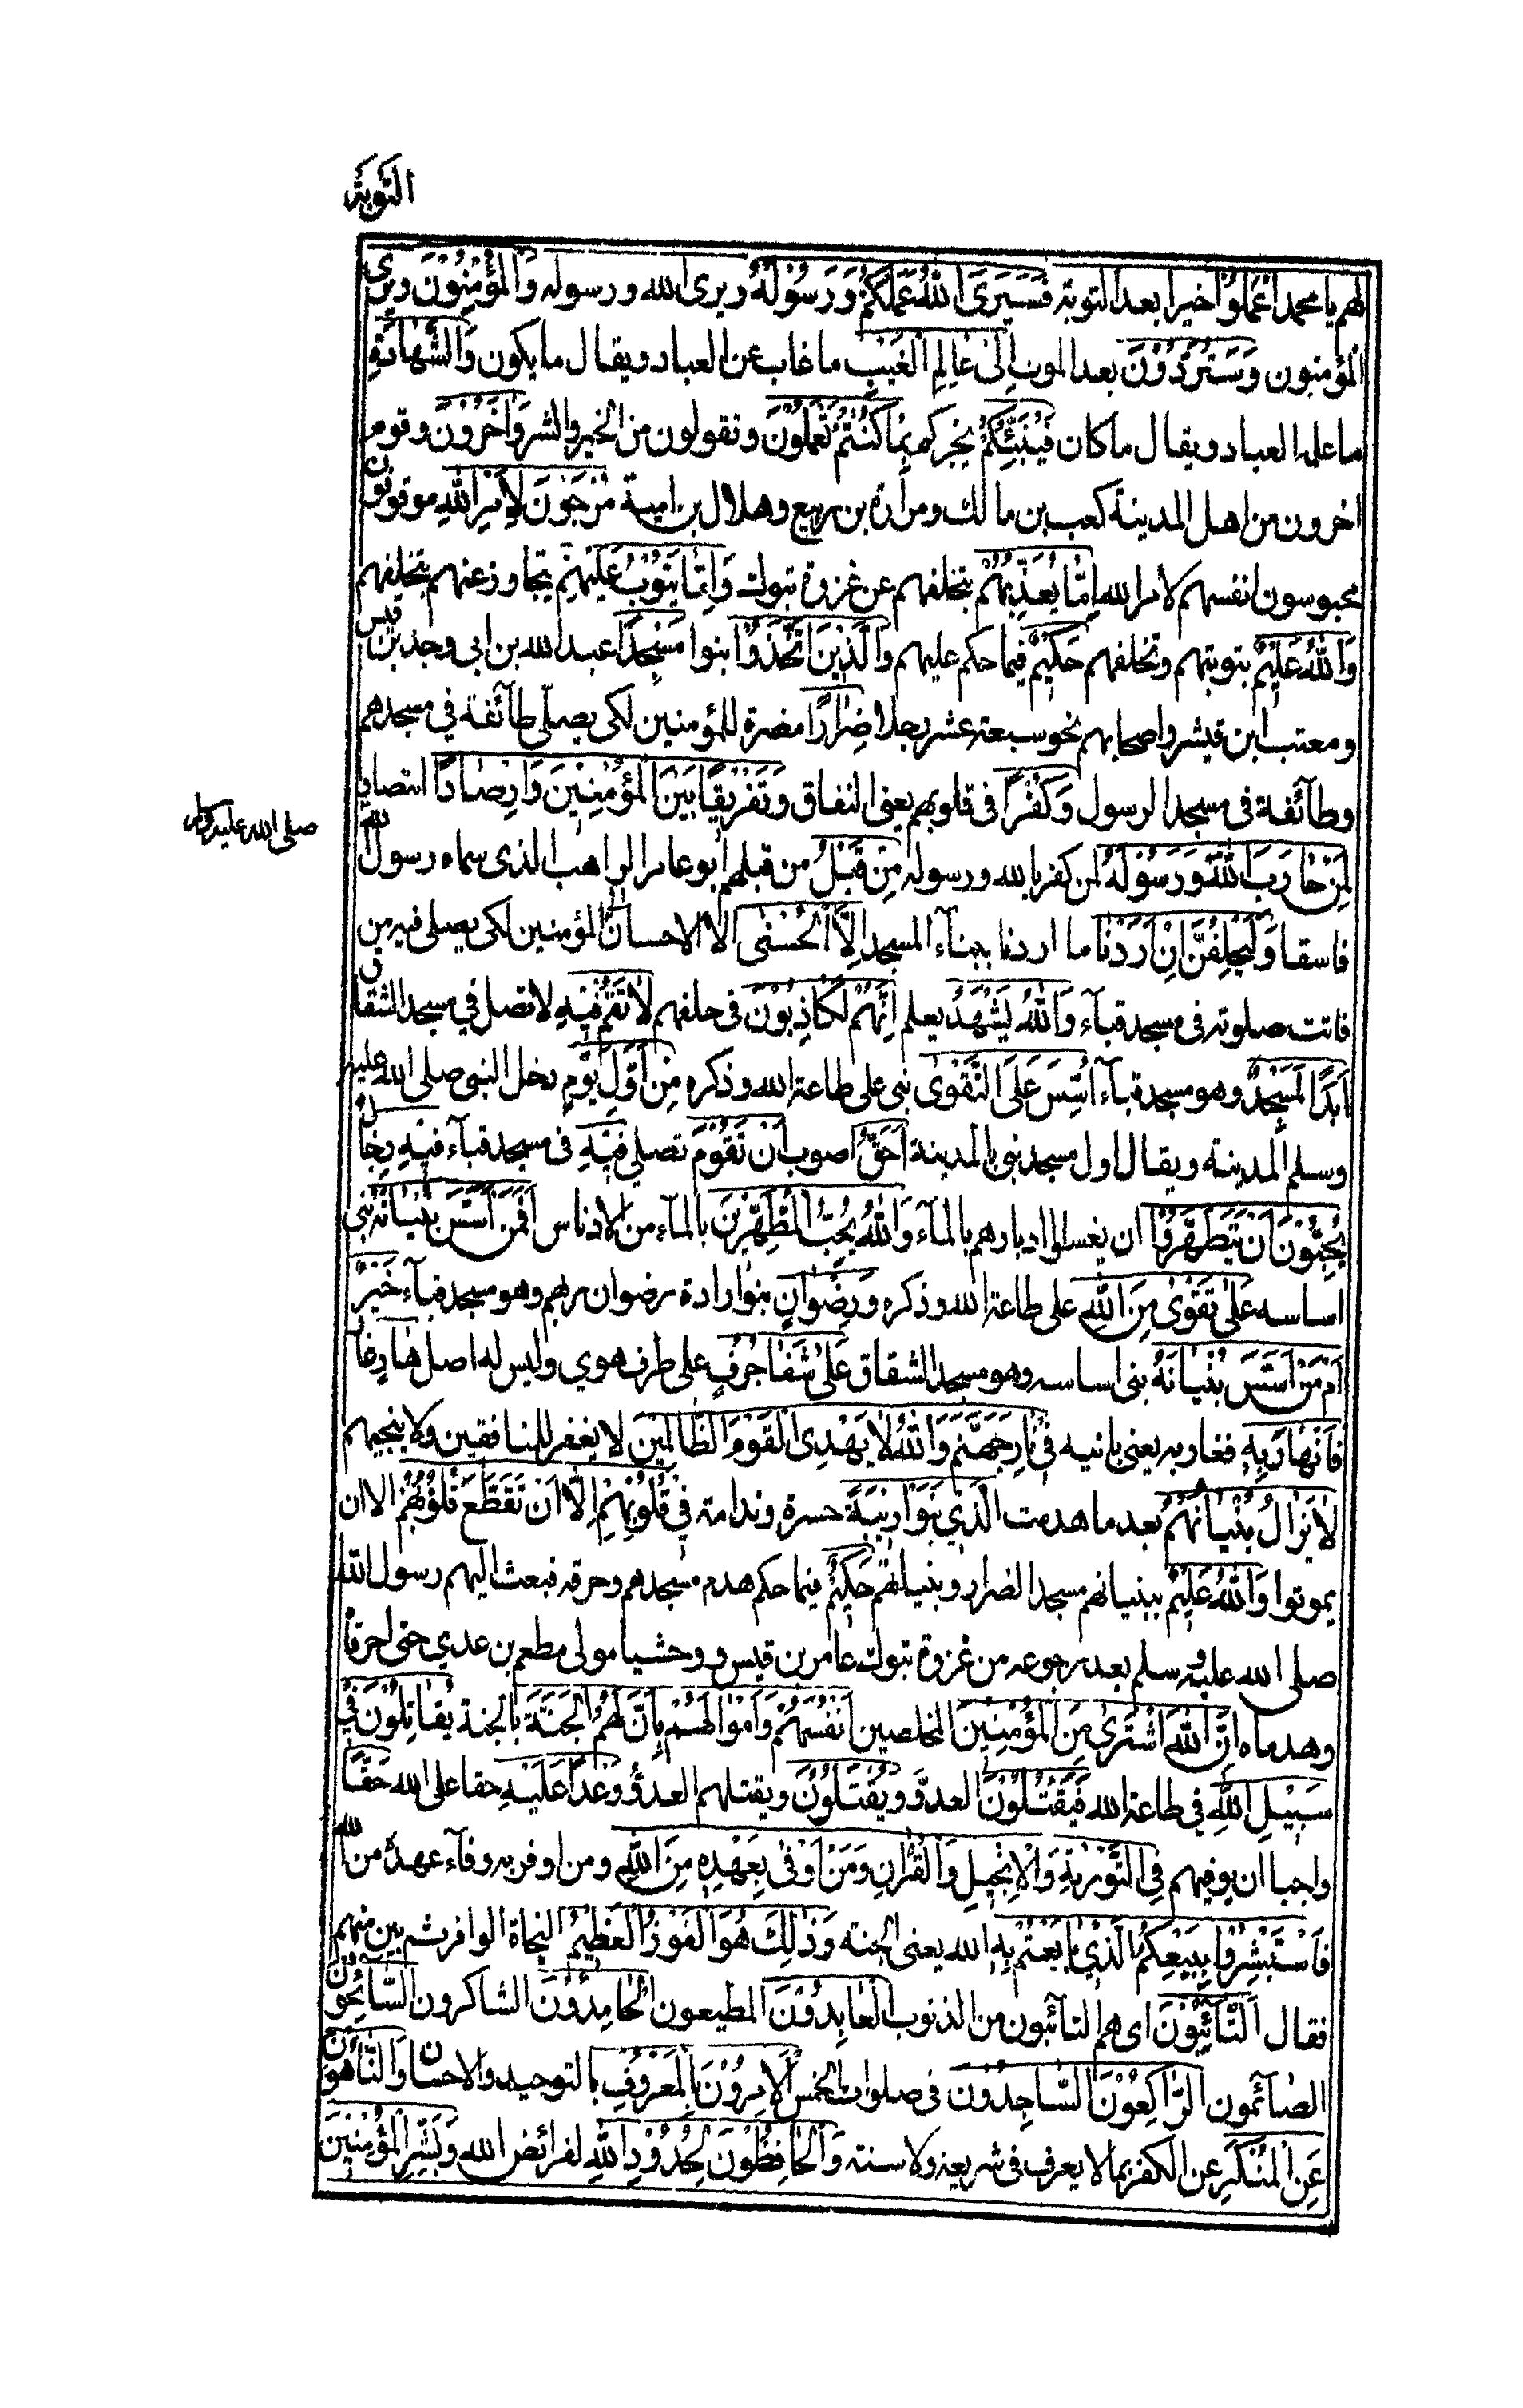 التوبة
لهم يا محمد اعْمَلُوْا خيرا بعد التوبة فَسَيَرَى اللّٰهُ عَمَلَكُمْ وَرَسُوْلُهُ ويرى الله ورسوله وَالْمُؤْمِنُوْنَ ويرى
المؤمنون وَسَتُرَدُّوْنَ بعد الموت اِلٰى عَالِمِ الْغَيْبِ ما غاب عن العباد ويقال ما يكون وَالشَّهَادَةِ
ما علمه العباد ويقال ما كان فَيُنَبِّئُكُمْ يخبركم بِمَا كُنْتُمْ تَعْمَلُوْنَ وتقولون من الخير والشر وَاٰخَرُوْنَ وقوم
اخرون من اهل المدينة كعب بن مالك ومرارة بن ربيع وهلال بن امية مُرْجَوْنَ لِاَمْرِ اللّٰهِ موقوفون
محبوسون انفسهم لامر الله اِمَّا يُعَذِّبُهُمْ بتخلفهم عن غزوة تبوك وَاِمَّا يَتُوْبُ عَلَيْهِمْ يتجاوز عنهم بتخلفهم
وَاللّٰهُ عَلِيْمٌ بتوبتهم وتخلفهم حَكِيْمٌ فيما حكم عليهم وَالَّذِيْنَ اتَّخَذُوْا بنوا مَسْجِدًا عبد الله بن ابى وجد بن قيس
ومعتب ابن قيشر واصحابهم نحو سبعة عشر رجلا ضِرَارًا مضرة للمؤمنين لكى يصلى طآئفة في مسجدهم
وطآئفة فى مسجد الرسول وَكُفْرًا فى قلوبهم يعنى النفاق وَتَفْرِيْقًا بَيْنَ الْمُؤْمِنِيْنَ وَاِرْصَادًا انتصارا
لِمَنْ حَارَبَ اللّٰهَ وَرَسُوْلَهُ لمن كفر بالله ورسوله مِنْ قَبْلُ من قبلهم ابو عامر الراهب الذى سماه رسول الله
صلى الله عليه وسلم
فاسقا وَلَيَحْلِفُنَّ اِنْ اَرَدْنَا ما اردنا ببنآء المسجد اِلَّا الْحُسْنٰى الا الاحسان المؤمنين لكى يصلى فيه من
فاتت صلوته فى مسجد قبآء وَاللّٰهُ يَشْهَدُ يعلم اِنَّهُمْ لَكَاذِبُوْنَ فى حلفهم لَا تَقُمْ فِيْهِ لا تصل في مسجد الشقاق
اَبَدًا لَمَسْجِدٌ وهو مسجد قبآء اُسِّسَ عَلَى التَّقْوٰى بنى على طاعة الله وذكره مِنْ اَوَّلِ يَوْمٍ دخل النبى صلى الله عليه
وسلم المدينة ويقال اول مسجد بنى بالمدينة اَحَقُّ اصوب اَنْ تَقُوْمَ تصلى فِيْهِ فى مسجد قبآء فِيْهِ رِجَالٌ
يُحِبُّوْنَ اَنْ يَتَطَهَّرُوْا ان يغسلوا ادبارهم بالمآء وَاللّٰهُ يُحِبُّ الْمُطَّهِّرِيْنَ بالمآء من الادناس اَفَمَنْ اَسَّسَ بُنْيَانَهُ بنى
اساسه عَلٰى تَقْوٰى مِنَ اللّٰهِ على طاعة الله وذكره وَرِضْوَانٍ بنوا ارادة رضوان ربهم وهو مسجد قبآء خَيْرٌ
اَمْ مَنْ اَسَّسَ بُنْيَانَهُ بنى اساسه وهو مسجد الشقاق عَلٰى شَفَا جُرُفٍ على طرف هوي وليس له اصل هَارٍ غار
فَانْهَارَ بِهِ فغار به يعنى بانيه فِيْ نَارِ جَهَنَّمَ وَاللّٰهُ لَا يَهْدِى الْقَوْمَ الظَّالِمِيْنَ لا يغفر للمنافقين ولا ينجيهم
لَا يَزَالُ بُنْيَانُهُمُ بعد ما هدمت الَّذِيْ بَنَوْا رِيْبَةً حسرة وندامة فِيْ قُلُوْبِهِمْ اِلَّا اَنْ تَقَطَّعَ قُلُوْبُهُمْ الا ان
يموتوا وَاللّٰهُ عَلِيْمٌ ببنيانهم مسجد الضرار وبنياتهم حَكِيْمٌ فيما حكم هدم مسجدهم وحرقه فبعث اليهم رسول الله
صلى الله عليه وسلم بعد رجوعه من غزوة تبوك عامر بن قيس ووحشيا مولى مطعم بن عدي حتى احرقا
وهدماه اِنَّ اللّٰهَ اشْتَرٰى مِنَ الْمُؤْمِنِيْنَ المخلصين اَنْفُسَهُمْ وَاَمْوَالَهُمْ بِاَنَّ لَهُمُ الْجَنَّةَ بالجنة يُقَاتِلُوْنَ فِيْ
سَبِيْلِ اللّٰهِ في طاعة الله فَيَقْتُلُوْنَ العدوّ وَيُقْتَلُوْنَ ويقتلهم العدوّ وَعْدًا عَلَيْهِ حقا على الله حَقًّا
واجبا ان يوفيهم فِى التَّوْرٰىةِ وَالْاِنْجِيْلِ وَالْقُرْاٰنِ وَمَنْ اَوْفٰى بِعَهْدِهٖ مِنَ اللّٰهِ ومن اوفر به وفآء عهده من الله
فَاسْتَبْشِرُوْا بِبَيْعِكُمُ الَّذِيْ بَايَعْتُمْ بِهِ الله يعنى الجنة وَذٰلِكَ هُوَ الْفَوْزُ الْعَظِيْمُ النجاة الوافر ثم بين منهم
فقال اَلتَّآئِبُوْنَ اى هم التآئبون من الذنوب الْعَابِدُوْنَ المطيعون الْحَامِدُوْنَ الشاكرون السَّآئِحُوْنَ
الصآئمون الرَّاكِعُوْنَ السَّاجِدُوْنَ فى صلوات الخمس الْاٰمِرُوْنَ بِالْمَعْرُوْفِ بالتوحيد والاحسان وَالنَّاهُوْنَ
عَنِ الْمُنْكَرِ عن الكفر بما لا يعرف فى شريعة ولا سنة وَالْحَافِظُوْنَ لِحُدُوْدِ اللّٰهِ لفرائض الله وَبَشِّرِ الْمُؤْمِنِيْنَ